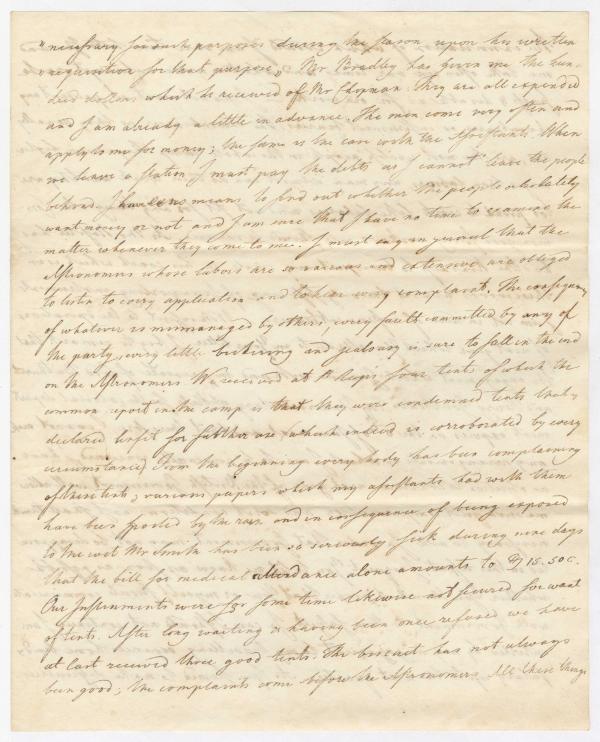 "necessary for such purposes during the season upon his written
"requisition for that purpose" Mr Bradley has given me the hun-
dred dollars which he received of Mr Chapman. They are all expended
and I am already a little in advance. The men come very often and
apply to me for money; the same is the case with the Assistants. When
we leave a station I must pay the debts as I cannot leave the people
behind. I have no means to find out whether the people absolutely
want money or not and I am sure that I have no time to examine the
matter whenever they come to me. I must say in general that the
Astronomers whose labors are so various and extensive are obliged
to listen to every application and to hear every complaint. The consequence
of whatever is mismanaged by others, every fault committed by any of
the party, every little bickering and jealousy is sure to fall in the end
on the Astronomers. We received at St Regis four tents of which the
common report in the camp is that they were condemned tents that is
declared unfit for further use (which indeed is corroborated by every
circumstance) From the beginning every body has been complaining
of these tents; various papers which my assistants had with them
have been spoiled by the rain and in consequence of being exposed
to the wet Mr Smith has been so seriously sick during nine days
that the bill for medical attendance alone amounts to $ 15.50 c.
Our Instruments were for some time likewise not secured for want
of tents. After long waiting & having been once refused we have
at last received three good tents. The biscuit has not always
been good; the complaints come before the Astronomers. All these things